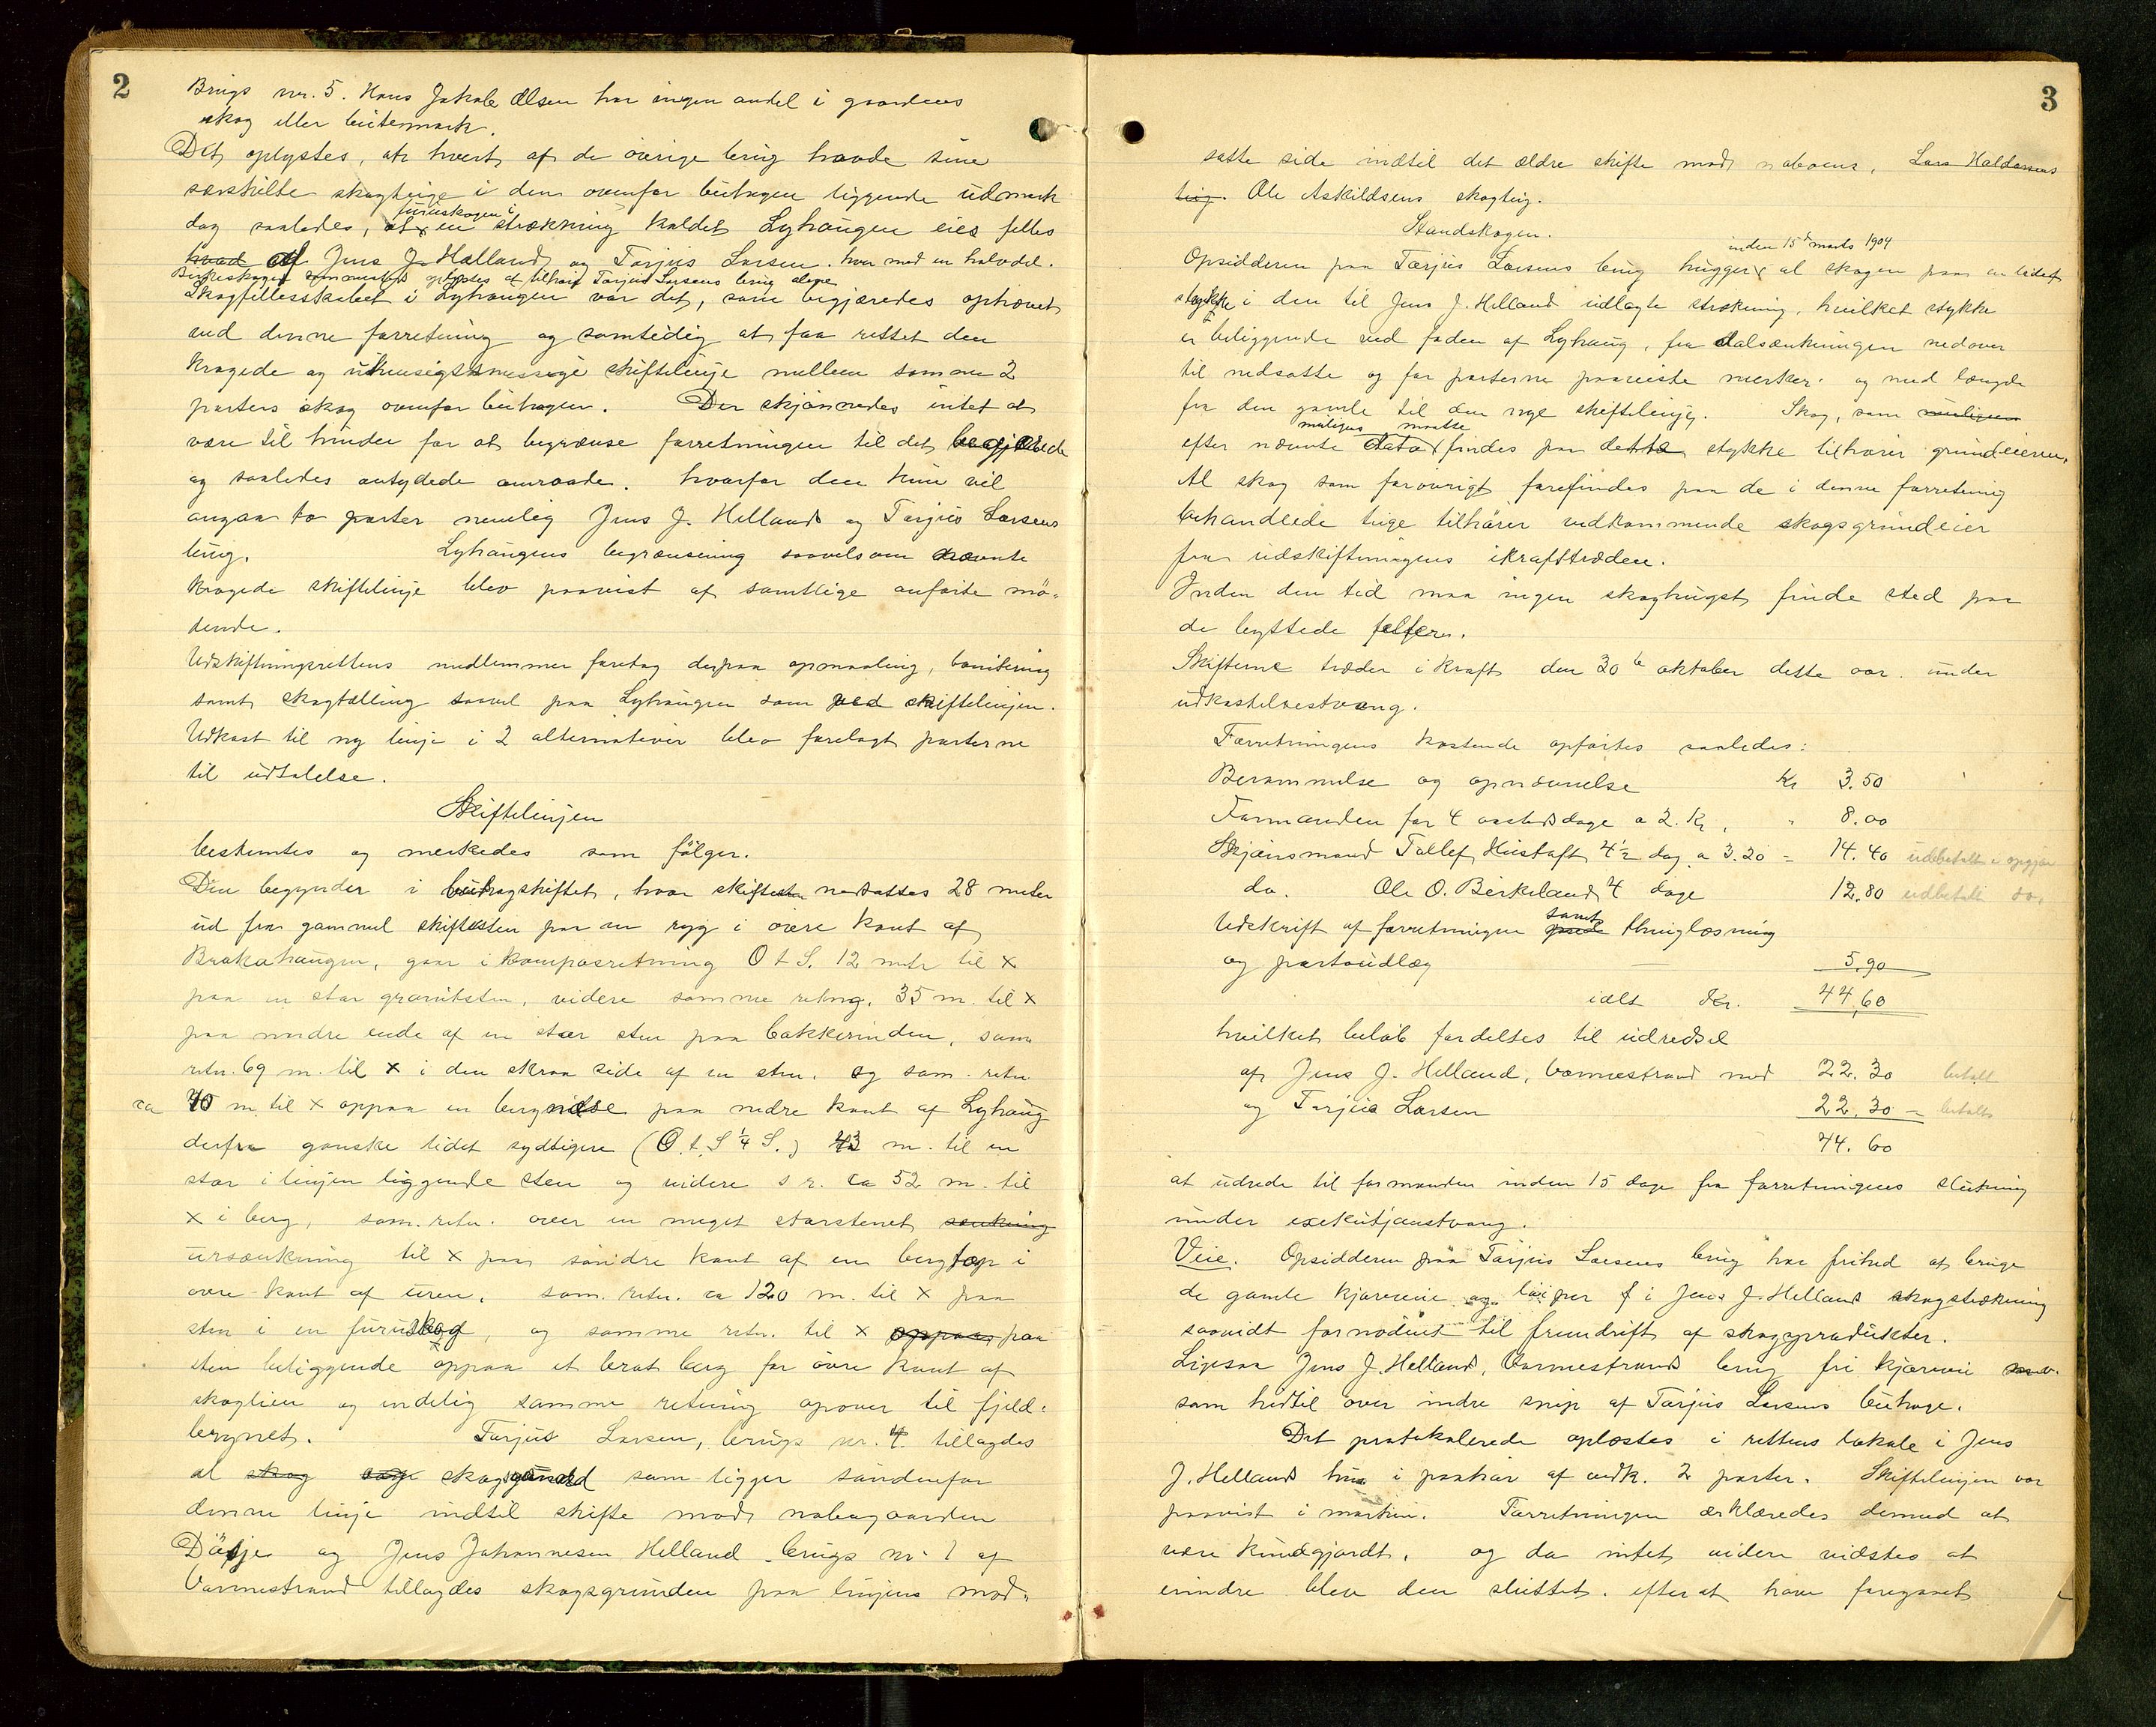 2
Brugs nr. 5. Hans Jakob Olsen har ingen andel i gaardens
skog eller beitesmark.
Det oplystes, at hvert af de øvrige brug havde sine
særskilte skogteige i den ovenfor buhagen liggende udmark
furuskogen i
dog saaledes, at en strækning kaldet Lyhaugen eies felles
hvad af Jens J. Helland og Tarjus Larsen. hver med en halvdel.
Birkeskogen sammesteds oplystes at tilhøre Tarjus Larsens brug alene
Skogfellesskabet i Lyhaugen var det, som begjæredes ophævet
ved denne forretning og samtidig at faa rettet den
krogede og uhensigtsmessige skiftelinje mellem samme 2
parters skog ovenfor buhagen. Der skjønnedes intet at
være til hinder for at begrænse forretningen til det begjærede
og saaledes antydede omraade. hvorfor den kun vil
angaa to parter nemlig Jens J. Helland og Tarjus Larsens
brug. Lyhaugens begrænsning saavelsom nævnte
krogede skiftelinje blev paavist af samtlige anførte mö-
dende.
Udskiftningsrettens medlemmer foretog derpaa opmaaling, bonitering
samt skogtælling saavel paa Lyhaugen som ved skiftelinjen.
Udkast til ny linje i 2 alternativer blev forelagt parterne
til udtalelse.
Skiftelinjen
bestemtes og merkedes som følger.
Den begynder i buhagskiftet, hvor skiftesten nedsattes 28 meter
ud fra gammel skiftesten paa en ryg i øvere kant af
Brakahaugen, gaar i kompasretning O t S. 12 meter til x
paa en stor granitsten, videre samme retng. 35 m. til x
paa nordre ende af en stor sten paa bakkerinden, sam
retn. 69 m. til x i den skraa side af en sten. og sam. retn
ca 70 m. til x oppaa en bergnibbe paa nedre kant af Lyhaug
derfra ganske lidet sydligere (O. t. S ¼ S.) 43 m. til en
stor i linjen liggende sten og videre s r. ca 52 m. til
x i berg, sam. retn. over en meget storstenet sænkning
ursænkning til x paa søndre kant af en bergtop i
øvre kant af uren, sam. retn. ca 120 m. til x paa
sten i en furuskog, og samme retn. til x oppaa paa
sten beliggende oppaa et brat berg for øvre kant af
skoglien og endelig samme retning opover til fjeld-
brynet. Tarjus Larsen, brugs nr. 4. tillagdes
al skog skogsgrund som ligger søndenfor
denne linje indtil skifte mod nabogaarden
og Jens Johannesen Helland brugs nr. 1 af
Varmestrand tillagdes skogsgrunden paa linjens mod-
3
satte side indtil det ældre skifte mod naboens, Lars Haldorsens
teig. Ole Askildsens skogteig.
Standskogen.
inden 15de marts 1904
Opsidderen paa Tarjus Larsens brug hugger al skogen paa en lidet
stykke i den til Jens J. Helland udlagte strækning, hvilket stykke
er beliggende ved foden af Lyhaug, fra dalsænkningen nedover
til nedsatte og for parterne paaviste merker. og med længde
fra den gamle til den nye skiftelinje. Skog, som muligens
muligens maatte
efter nævnte dato findes paa dette stykke tilhører grundeieren.
Al skog som forøvrigt forefindes paa de i denne forretning
behandlede teige tilhører vedkommende skogsgrundeier
fra udskiftningens ikrafttræden.
Inden den tid maa ingen skoghugst finde sted paa
de byttede felter.
Skifterne træder i kraft den 30te oktober dette aar. under
udkastelsestvang.
Forretningens kostende opførtes saaledes:
Berammelse og opnævnelse Kr 3.50
Formanden for 4 aastedsdage a 2. Kr, " 8.00
Skjønsmand Tallef Hustoft 4½ dag a 3.20 = 14.40 udbetalt
do. Ole O. Birkeland 4 dage 12.80 udbetalt do.
samt
Udskrift af forretningen thinglæsning
og portoudlæg 5.90
ialt Kr. 44,60
hvilket beløb fordeltes til udredsel
af Jens J. Helland, Varmestrand med 22.30 betalt
og Tarjus Larsen 22.30 — betalt
44.60
at udrede til formanden inden 15 dage fra forretningens slutning
under exekutjonstvang.
Veie. Opsidderen paa Tarjus Larsens brug har frihed at bruge
de gamle kjøreveie og løiper i Jens J. Helland skogstrækning
saavidt fornødent til fremdrift af skogprodukter.
Ligesaa Jens J. Helland, Varmestrands brug fri kjørevei
som hidtil over indre snip af Tarjus Larsens buhage.
Det protokolerede oplæstes i rettens lokale i Jens
J. Hellands hus i paahør af vedk. 2 parter. Skiftelinjen var
paavist i marken. Forretningen erklæredes dermed at
være kundgjordt. og da intet videre vidstes at
erindre blev den sluttet. efterat have foregaaet